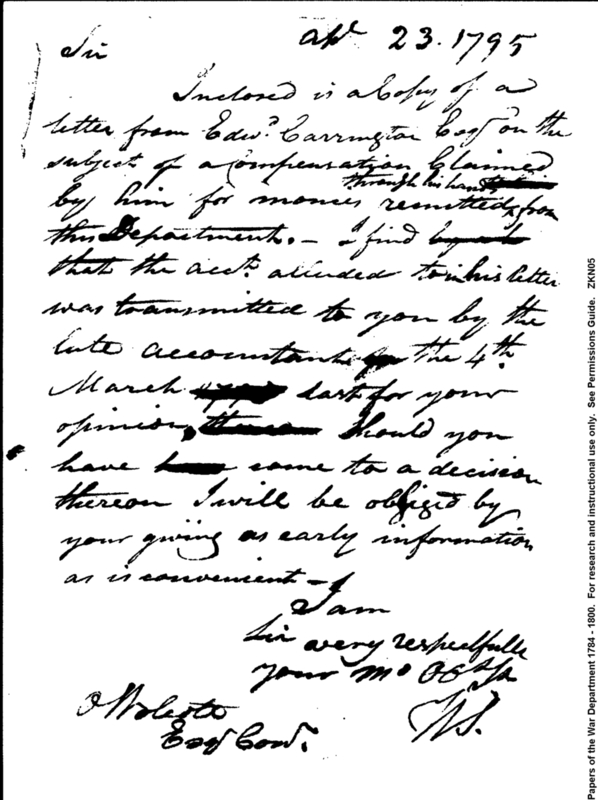 Apl 23. 1795
Sir
Inclosed is a Copy of a
letter from Edwd. Carrington Esqr on the
subject of a Compensation Claimed
through his hands
by him for monies remitted from
this Department. — I find
that the acct. alluded to in his letter
was transmitted to you by the
late accountant the 4th.
March last for your
opinion, Should you
have come to a decision
thereon I will be obliged by
your giving as early information
as is convenient — I am
Sir very respectfully
your Mo Ob St
WS.
O Wolcott
Esqr Com.
Papers of the War Department 1784 - 1800. For research and instructional use only. See Permissions Guide. ZKN05